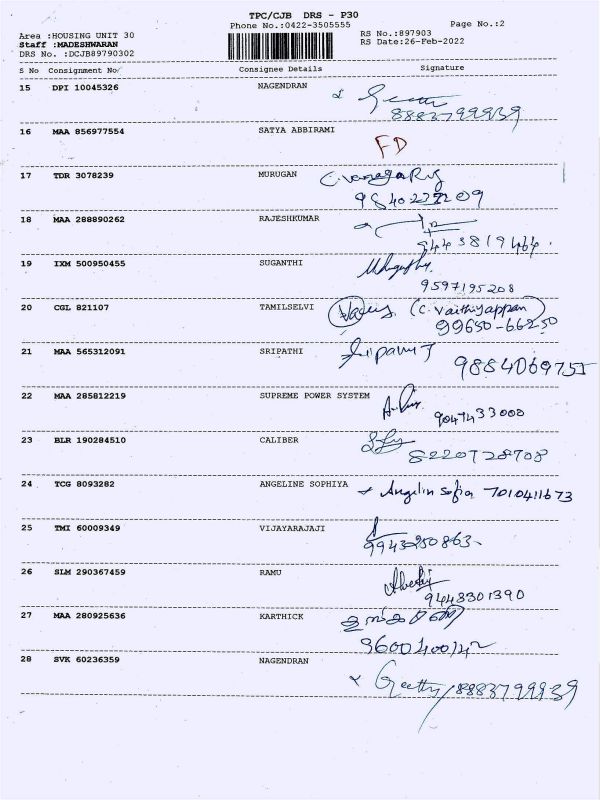 TPC/CJB DRS - P30
Phone No.:0422-3505555
Page No.:2
Area :HOUSING UNIT 30
RS No.:897903
Staff :MADESHWARAN
RS Date:26-Feb-2022
DRS No. :DCJB89790302
S No Consignment No/ Consignee Details Signature
15 DPI 10045326 NAGENDRAN
8883799939
16 MAA 856977554 SATYA ABBIRAMI FD
17 TDR 3078239 MURUGAN
18 MAA 288890262 RAJESHKUMAR
19 IXM 500950455 SUGANTHI
9597195208
20 CGL 821107 TAMILSELVI (C. Vaithiyappan)
99650-66250
21 MAA 565312091 SRIPATHI Sripathi
9884069755
22 MAA 285812219 SUPREME POWER SYSTEM
9047433000
23 BLR 190284510 CALIBER
8220728708
24 TCG 8093282 ANGELINE SOPHIYA Angelin Sofia 7010411673
25 TMI 60009349 VIJAYARAJAJI
9943250863
26 SLM 290367459 RAMU
9443301390
27 MAA 280925636 KARTHICK
28 SVK 60236359 NAGENDRAN Geetha/8883799939